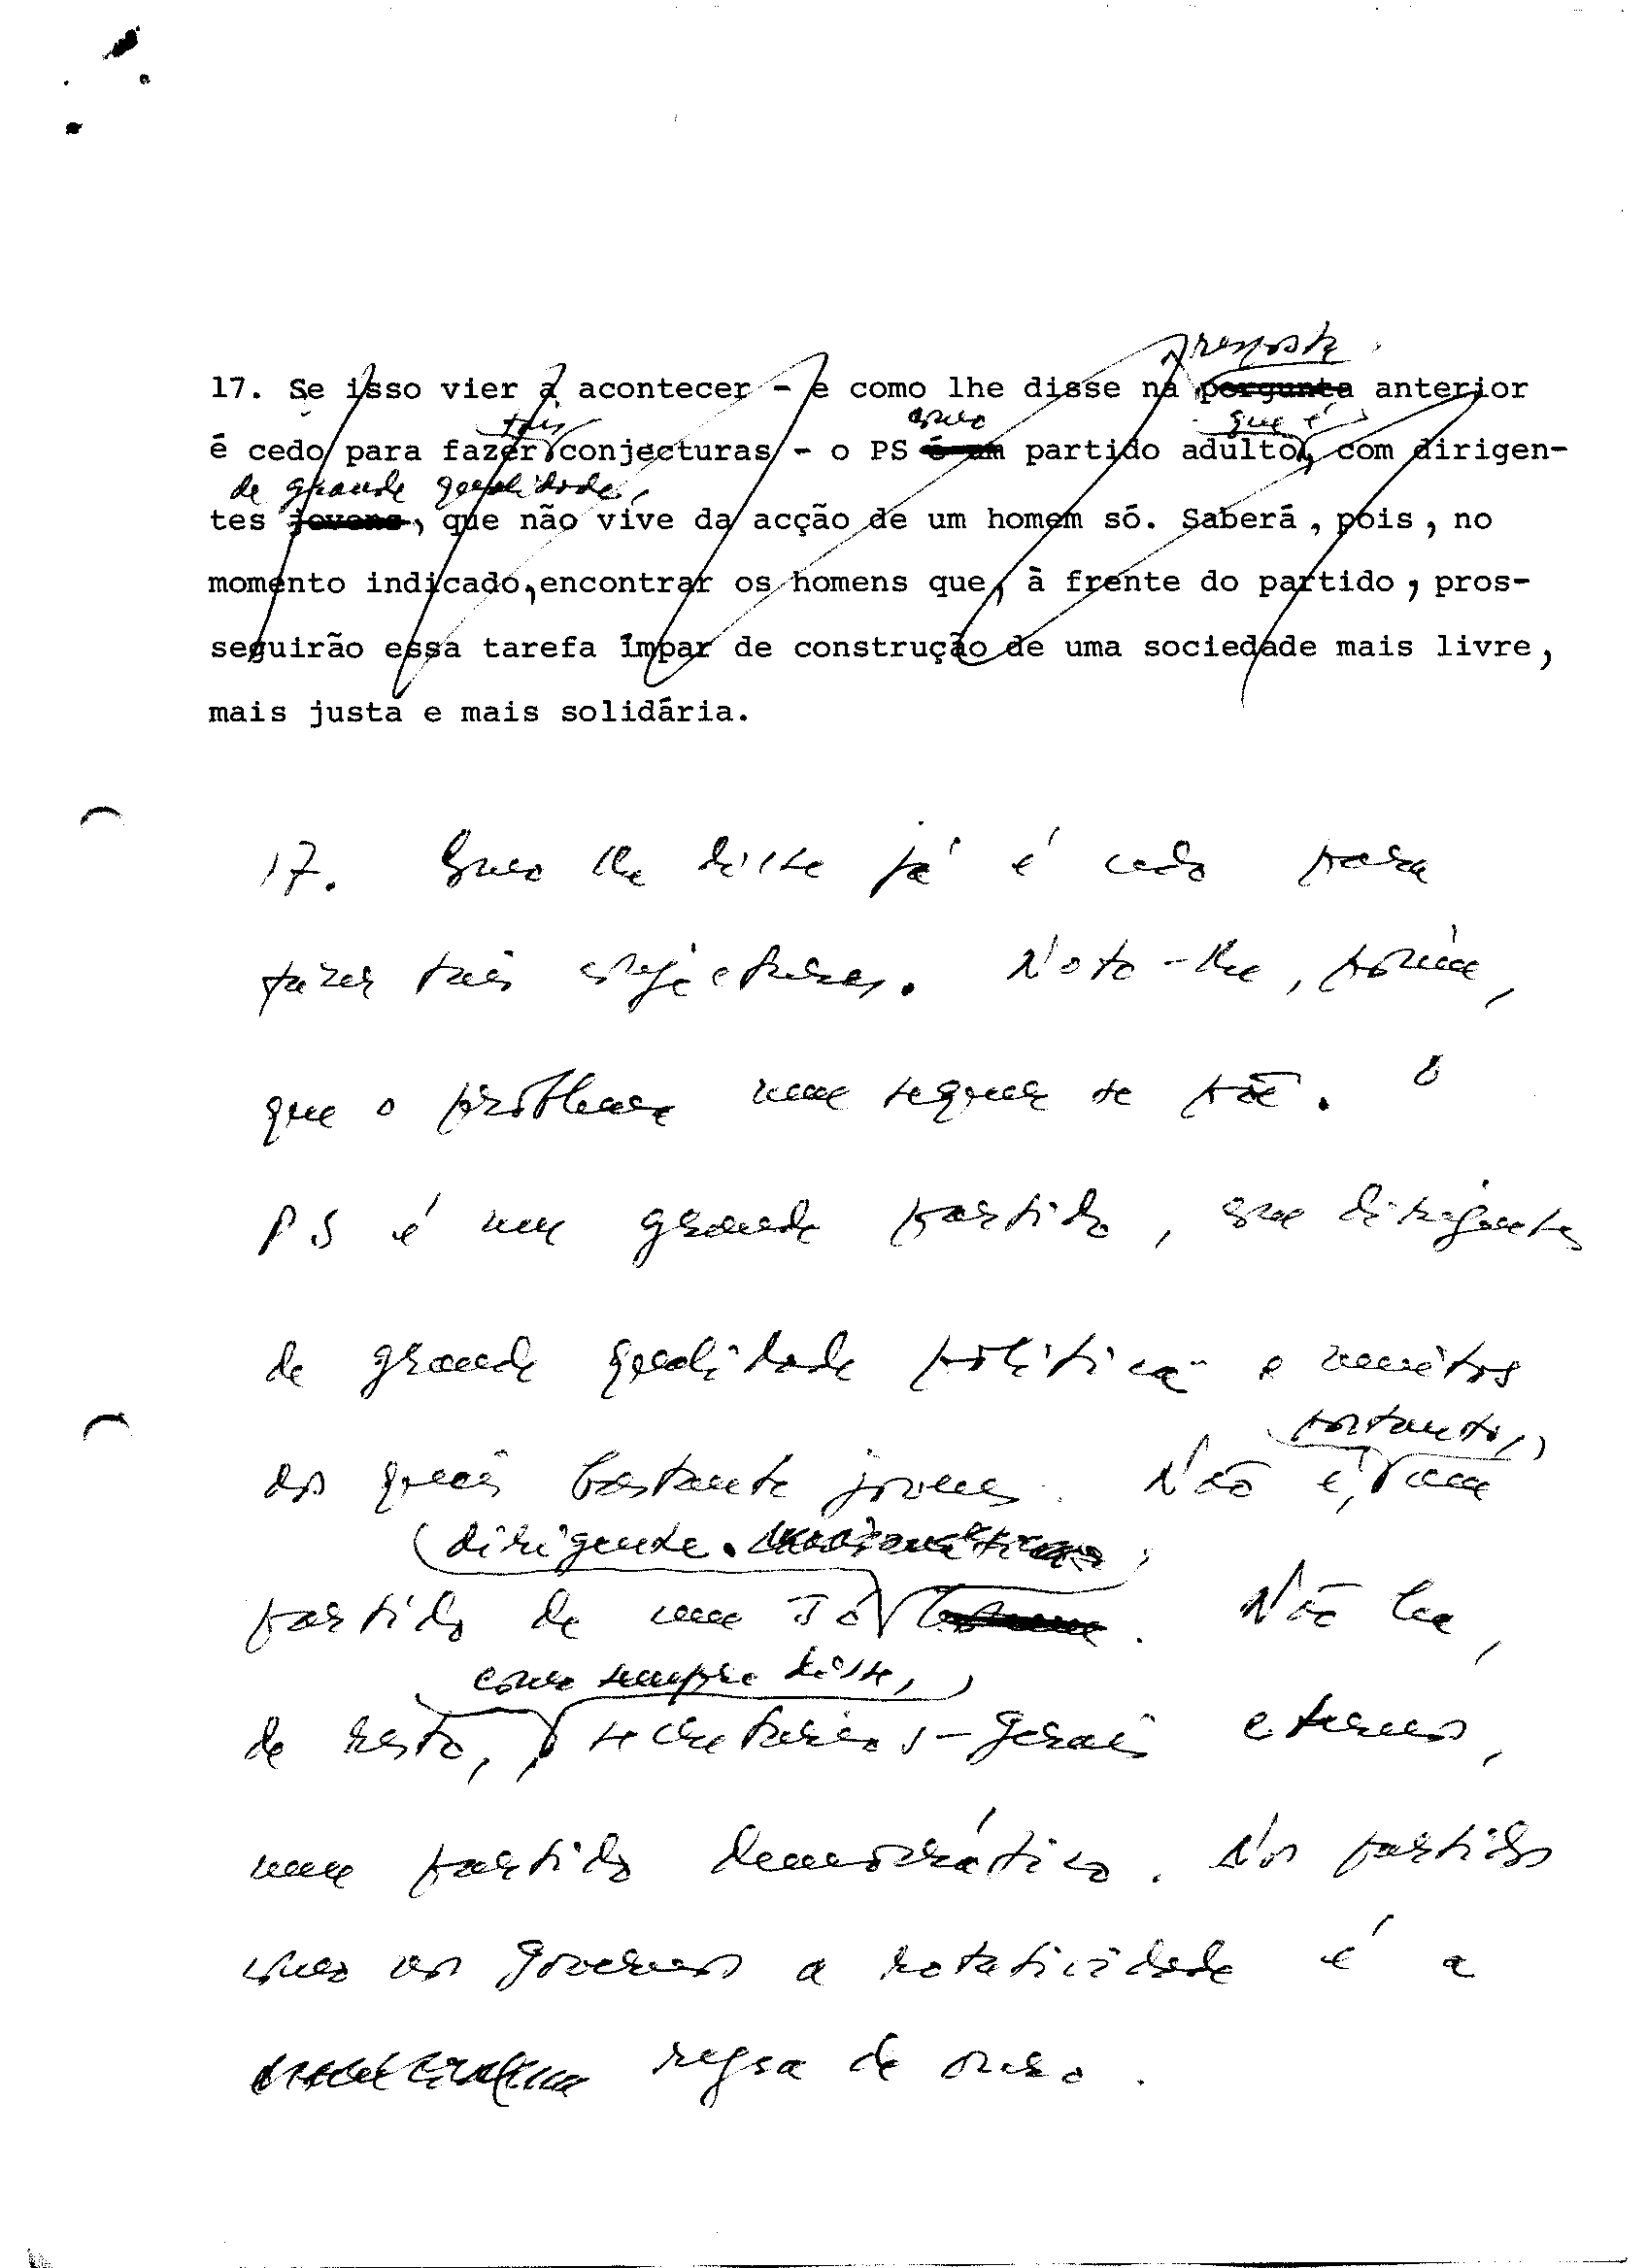 resposta
17. Se isso vier a acontecer - e como lhe disse na pergunta anterior
tais como que é
é cedo para fazer conjecturas - o PS é um partido adulto, com dirigen-
de grande qualidade,
tes jovens, que não vive da acção de um homem só. Saberá, pois, no
momento indicado, encontrar os homens que, à frente do partido, pros-
seguirão essa tarefa ímpar de construção de uma sociedade mais livre,
mais justa e mais solidária.
17. Como lhe disse já é cedo para
fazer tais conjecturas. Noto-lhe, porém,
que o problema nem sequer se põe. O
PS é um grande partido, com dirigentes
de grande qualidade política e muitos
portanto,
dos quais bastante jovens. Não é, um
dirigente.
partido de um só homem. Não há,
como sempre disse,
de resto, secretários-gerais eternos,
num partido democrático. Nos partidos
como nos governos a rotatividade é a
regra de ouro.